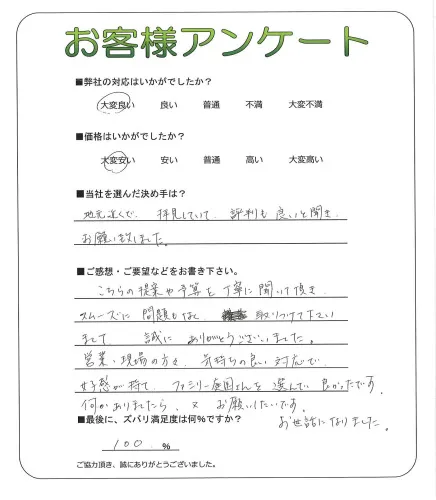 お客様アンケート
■弊社の対応はいかがでしたか？
大変良い 良い 普通 不満 大変不満
■価格はいかがでしたか？
大変安い 安い 普通 高い 大変高い
■当社を選んだ決め手は？
地元近くで、拝見していて、評判も良いと聞き、
お願い致しました。
■ご感想・ご要望などをお書き下さい。
こちらの提案や予算を丁寧に聞いて頂き、
スムーズに問題もなく 取りつけて下さい
まして 誠にありがとうございました。
営業・現場の方々、気持ちの良い対応で
好感が持て、ファミリー庭園さんを選んで良かったです。
何かありましたら、又お願いしたいです。
お世話になりました。
■最後に、ズバリ満足度は何%ですか？
100 %
ご協力頂き、誠にありがとうございました。